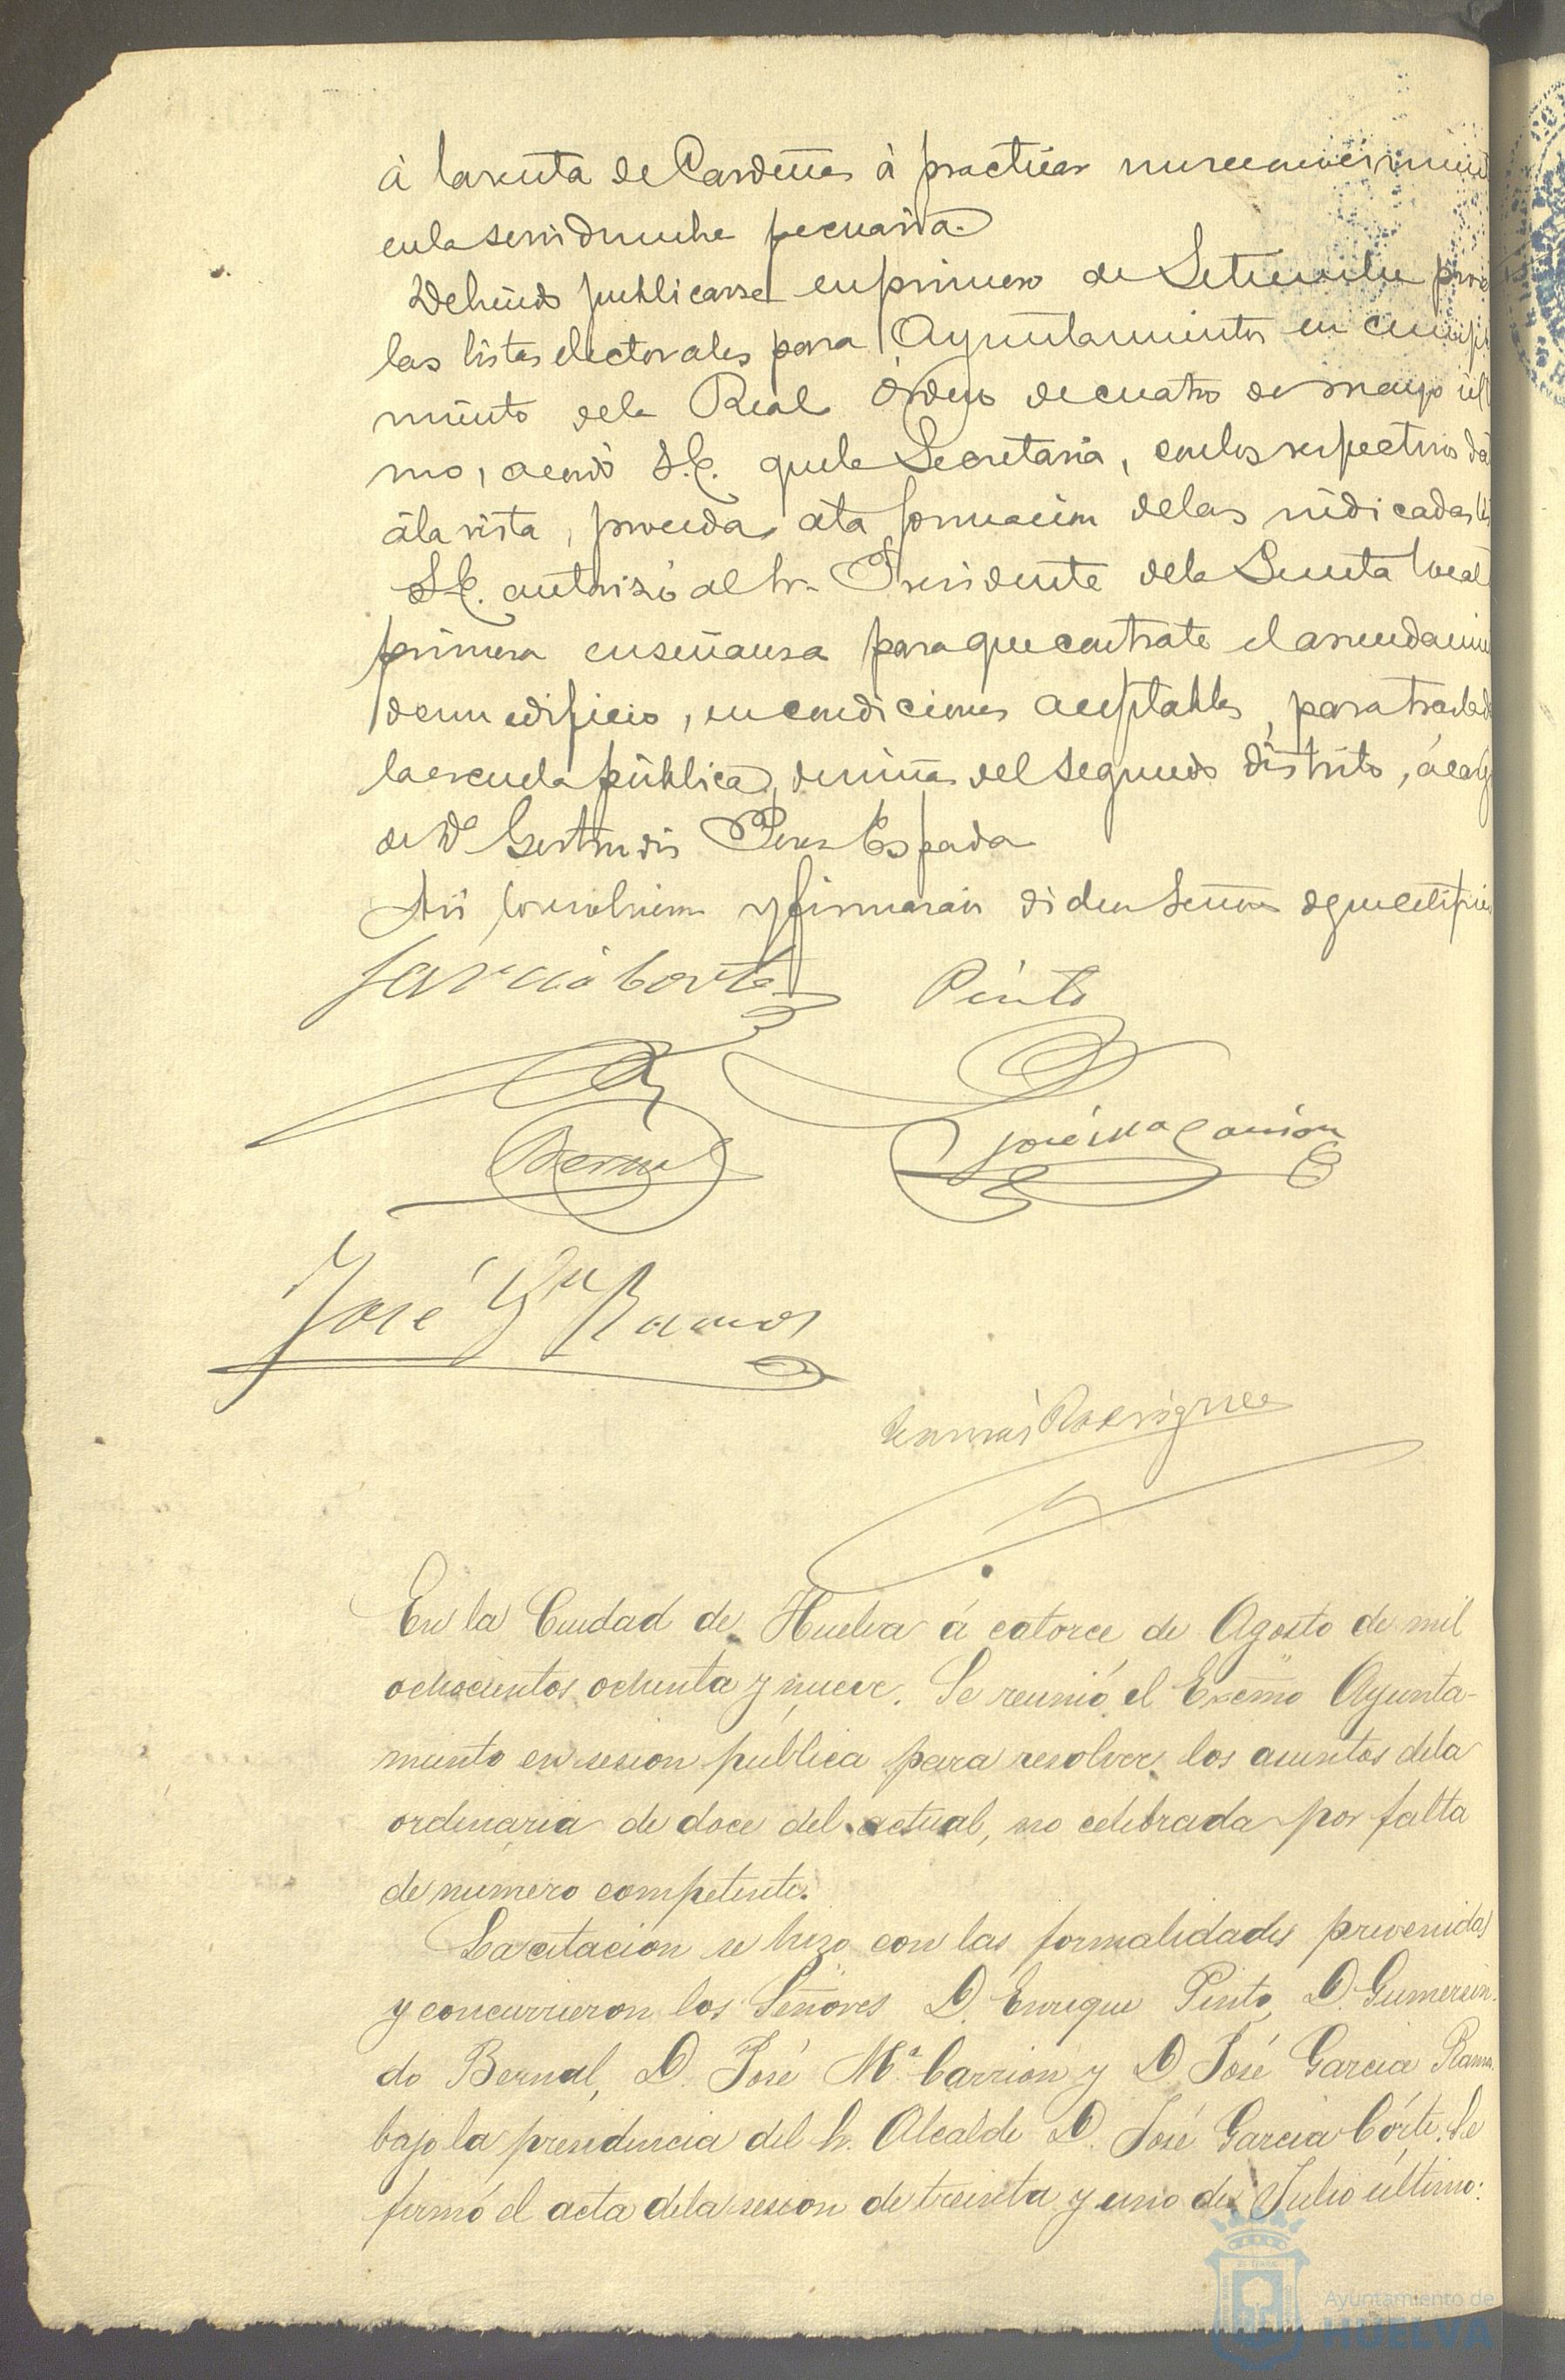 á la venta de Cardeñas á practicar un reconocimien
en la servidumbre pecuaria.
Debiendo publicarse en primero de Setiembre pro
las listas electorales para Ayuntamientos en cumpli
miento de la Real órden de cuatro de mayo últ
mo, acordó S.E. que la Secretaria, con los respectivos da
á la vista, proceda á la formacion de las indicadas lis
S.E. autorizó al Sr. Presidente de la Junta local
primera enseñanza para que contrate el arrendamien
de un edificio, en condiciones aceptables, para traslad
la escuela pública de niñas del segundo distrito, á carg
de Dª Gertrudis Perez Espada
Así lo resolvieron y firmarán dichos Señores de que certifico
Garcia Corte Pinto
Bernal José Mª Carrion
José Gª Ramos
Rodriguez
En la Ciudad de Huelva á catorce de Agosto de mil
ochocientos ochenta y nueve. Se reunió el Excmo Ayunta-
miento en sesion pública para resolver los asuntos dela
ordinaria de doce del actual, no celebrada por falta
de número competente.
La citacion se hizo con las formalidades prevenidas
y concurrieron los Señores D. Enrique Pinto, D. Gumersin-
do Bernal, D. José Mª Carrion y D. José Garcia Ramos
bajo la presidencia del Sr. Alcalde D. José Garcia Córte. Se
firmó el acta dela sesion de treinta y uno de Julio último.
Ayuntamiento de
HUELVA